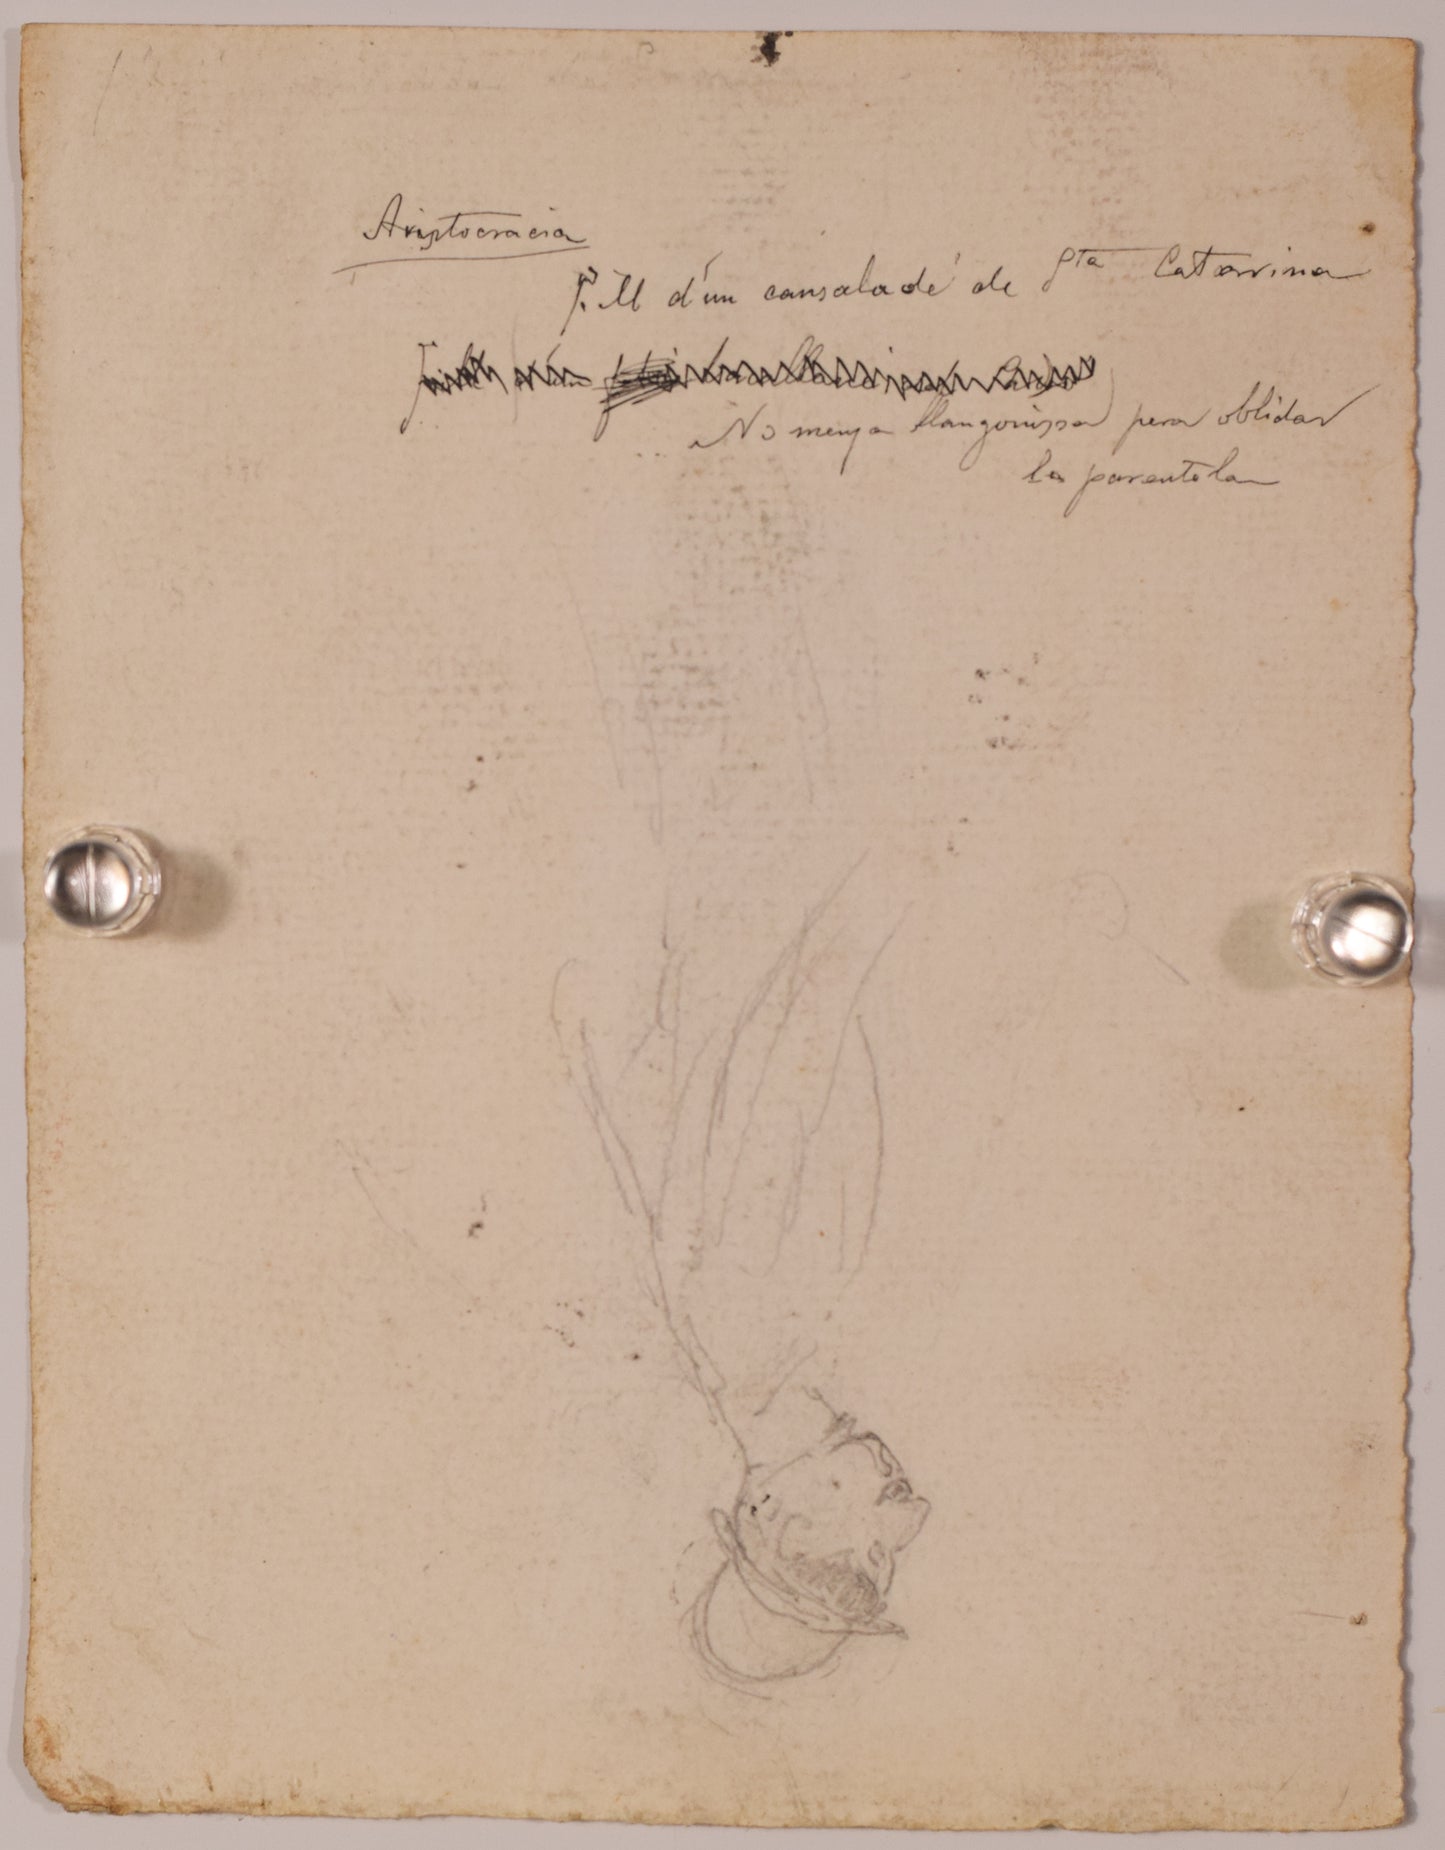 Aristocracia
Fill d'un cansaladé de Sta Catarina
No menja llangonissa pera oblidar
la parentela